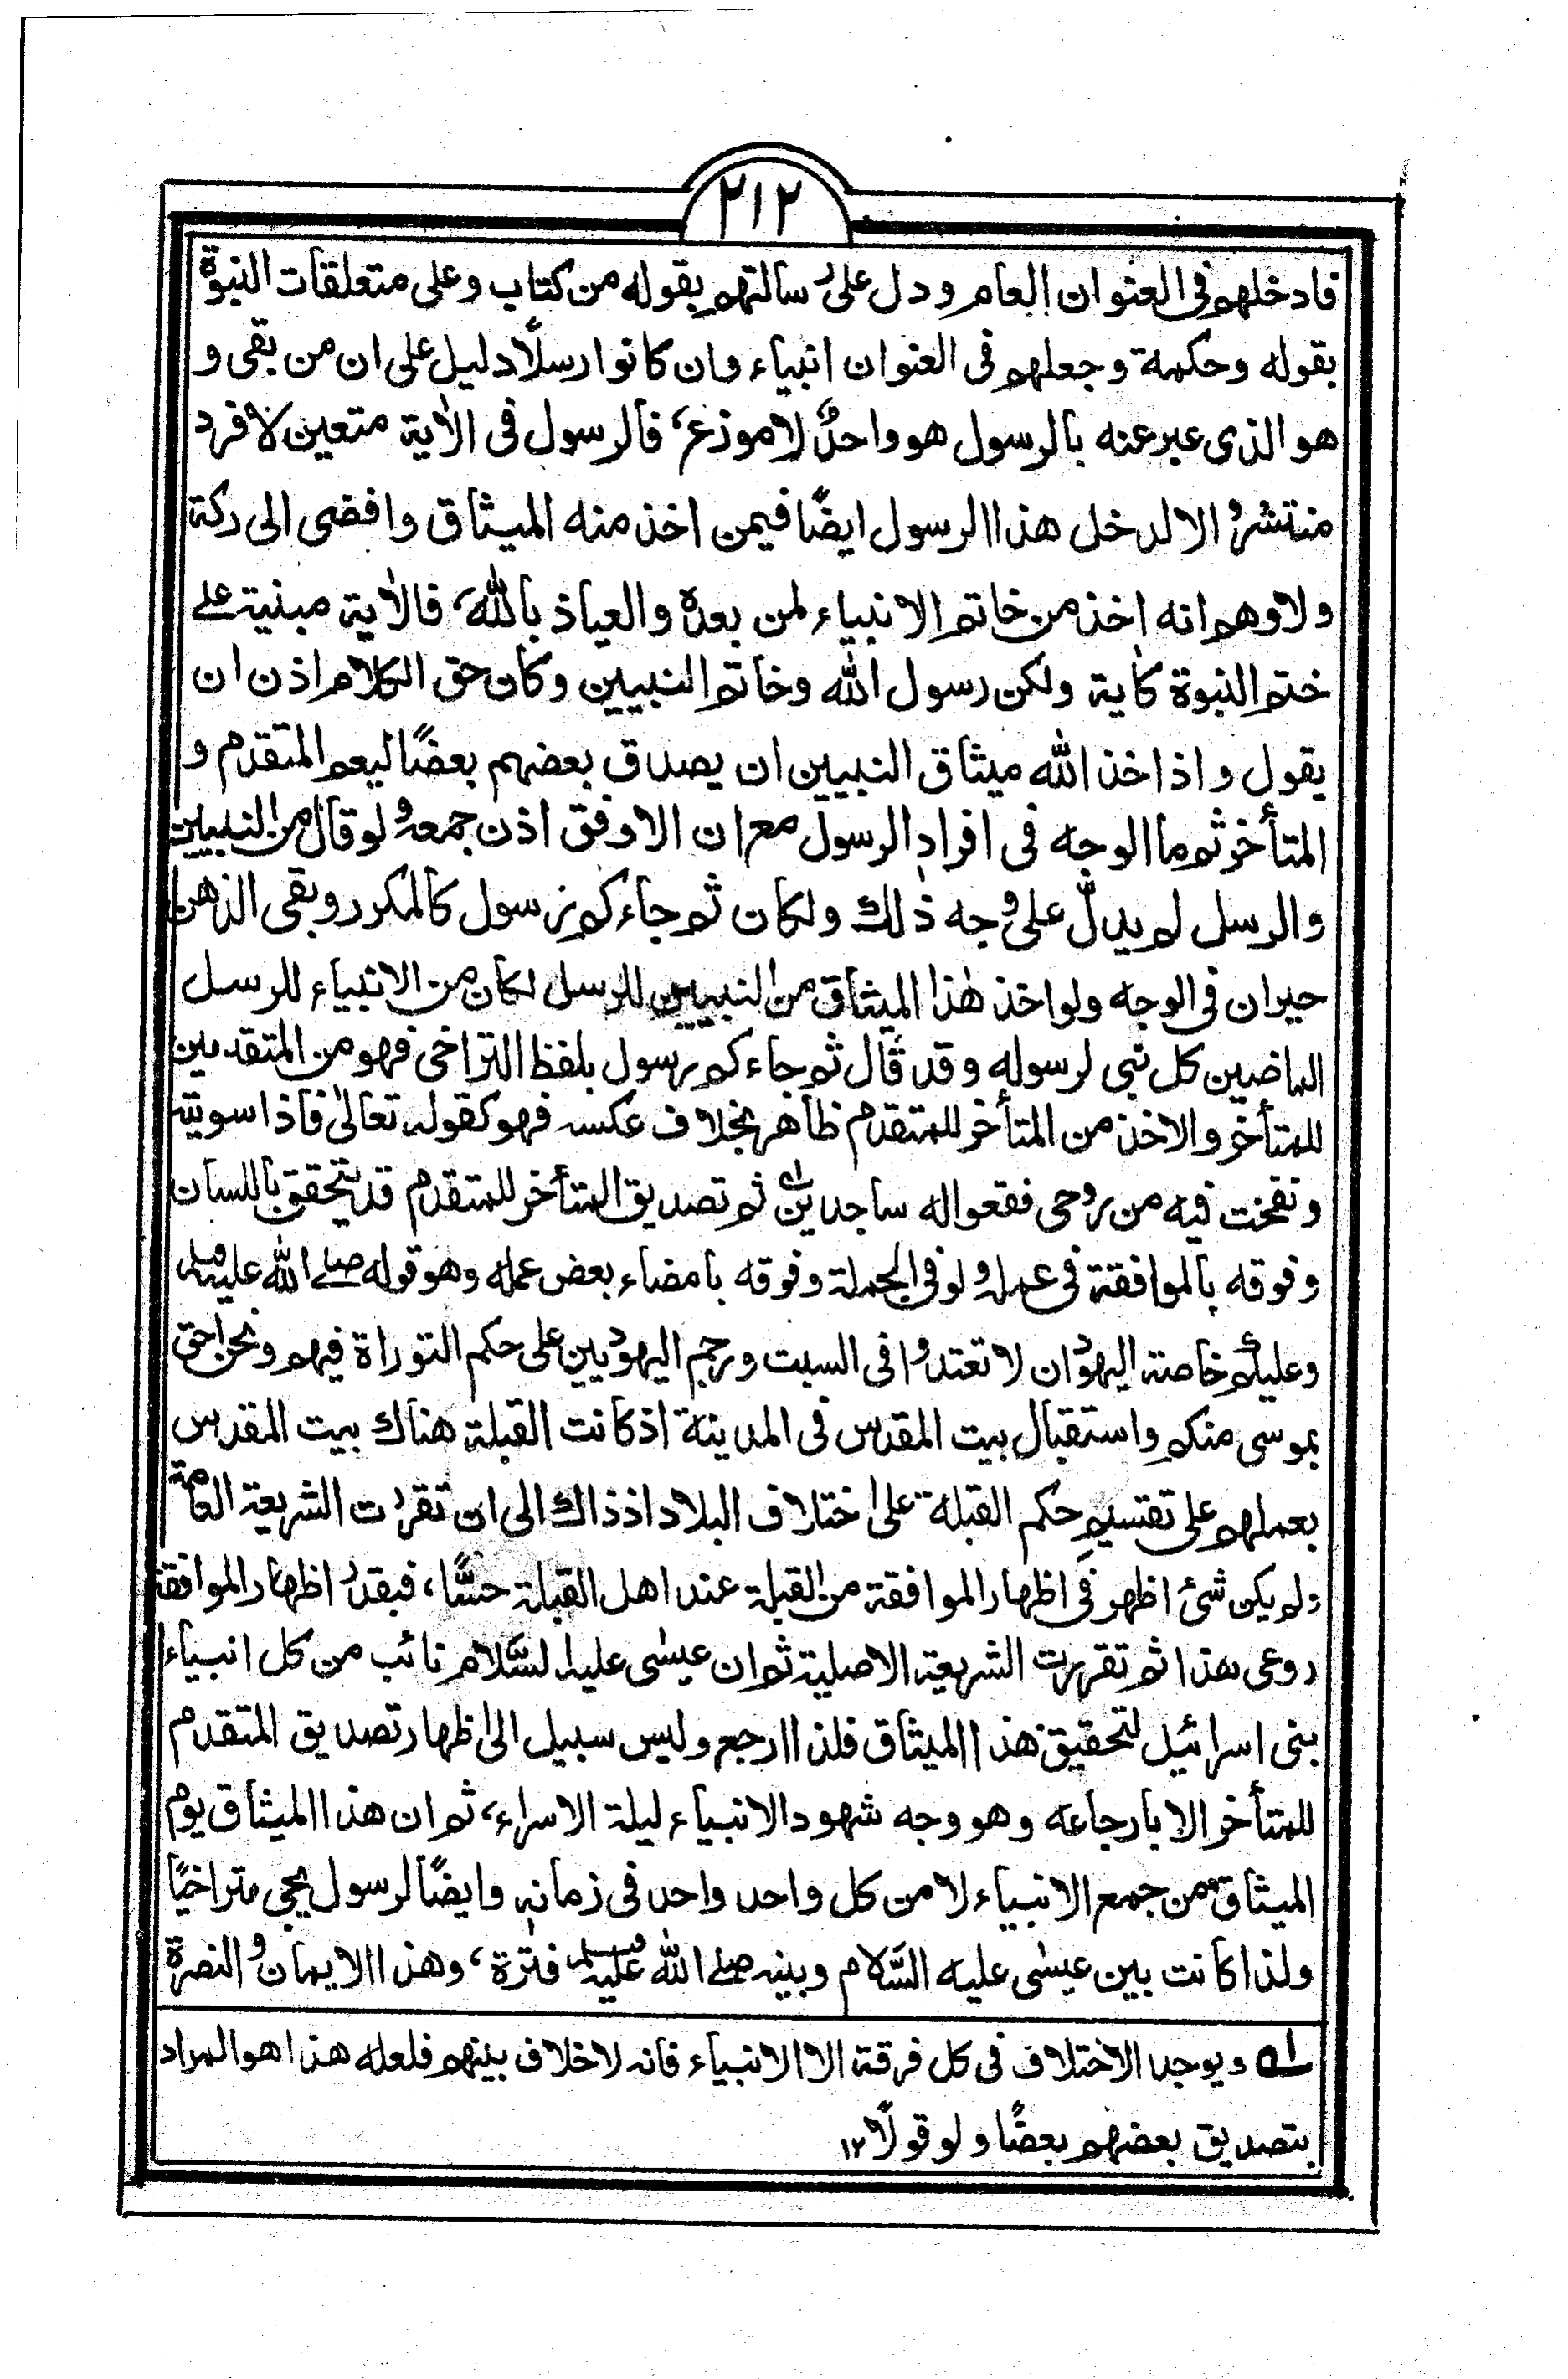 ٢١٢
فادخلهم فى العنوان العام ودل على رسالتهم بقوله من كتاب وعلى متعلقات النبوة
بقوله وحكمة وجعلهم فى العنوان انبياء وان كانوا رسلًا دليل على ان من بقى و
هو الذى عبر عنه بالرسول هو واحدٌ لا موزع، فالرسول فى الاٰية متعين لا فرد
منتشر والا لدخل هذا الرسول ايضًا فيمن اخذ منه الميثاق وافضى الى ركة
ولاوهم انه اخذ من خاتم الانبياء لمن بعده والعياذ بالله، فالاٰية مبنية على
ختم النبوة كاٰية ولكن رسول الله وخاتم النبيين وكان حق الكلام اذن ان
يقول واذ اخذ الله ميثاق النبيين ان يصدق بعضهم بعضًا ليعم المتقدم و
المتأخر ثم ما الوجه فى افراد الرسول مع ان الاوفق اذن جمعه ولو قال من النبيين
والرسل لم يدل على وجه ذٰلك ولكان ثم جاءكم رسول كالمكرر وبقى الذهن
حيران فى الوجه ولو اخذ هٰذا الميثاق من النبيين للرسل لكان من الانبياء للرسل
الماضين كل نبى لرسوله وقد قال ثم جاءكم رسول بلفظ التراخى فهو من المتقدمين
للمتأخر والاخذ من المتأخر للمتقدم ظاهر بخلاف عكسه فهو كقوله تعالىٰ فاذا سويته
ونفخت فيه من روحى فقعوا له ساجدين ثم تصديق المتأخر للمتقدم قد يتحقق باللسان
وفوقه بالموافقة فى عمله ولو فى الجملة وفوقه بامضاء بعض عمله وهو قوله صلى الله عليه وسلم
وعليكم خاصة اليهود ان لا تعتدوا فى السبت ورجم اليهوديين على حكم التوراة فيهم ونحن احق
بموسى منكم واستقبال بيت المقدس فى المدينة اذ كانت القبلة هناك بيت المقدس
بعملهم على تقسيم حكم القبلة على اختلاف البلاد اذ ذاك الى ان تقررت الشريعة العامة
ولم يكن شئ اظهر فى اظهار الموافقة من القبلة عند اهل القبلة حسًّا، فبقدر اظهار الموافقة
روعى هذا ثم تقررت الشريعة الاصلية ثم ان عيسٰى عليه السلام نائب من كل انبياء
بنى اسرائيل لتحقيق هذا الميثاق فلذا ارجع وليس سبيل الى اظهار تصديق المتقدم
للمتأخر الا بارجاعه وهو وجه شهود الانبياء ليلة الاسراء، ثم ان هذا الميثاق يوم
الميثاق من جمع الانبياء لا من كل واحد واحد فى زمانه وايضًا لرسول يجئ متراخيًا
ولذا كانت بين عيسٰى عليه السلام وبينه صلى الله عليه وسلم فترة، وهذا الايمان والنصرة
لـه ويوجد الاختلاف فى كل فرقة الا الانبياء فانه لا خلاف بينهم فلعله هذا هو المراد
بتصديق بعضهم بعضًا ولو قولًا ١٢